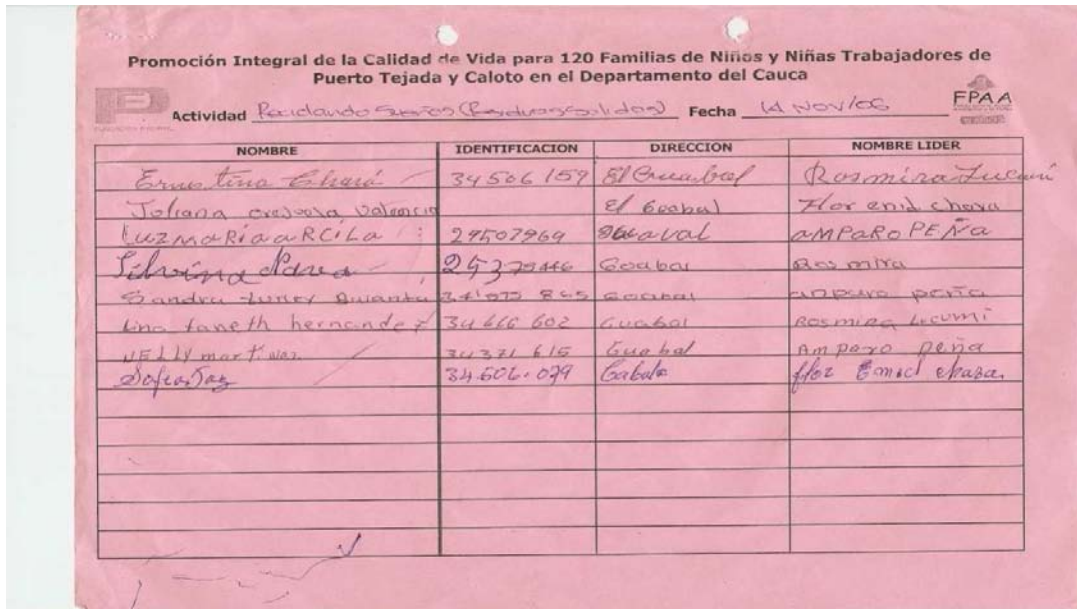 Promoción Integral de la Calidad de Vida para 120 Familias de Niños y Niñas Trabajadores de
Puerto Tejada y Caloto en el Departamento del Cauca
FPAA
Actividad Reciclando Sueños (Residuos solidos) Fecha 14 NOV/06
NOMBRE IDENTIFICACION DIRECCION NOMBRE LIDER
Ernestina Chará 34506159 El Guabal Rosmira Lucumí
Joliana valencia El Goabal Flor enid chara
LUZ MARIA ARCILA 29507969 AMPARO PEÑA
Silvina 25379446 Goabal Rosmira
Sandra Goabal Amparo peña
Lina Janeth hernandez 34 616 602 Guabal Rosmira Lucumi
NELLY martinez 34371 615 Guabal Amparo peña
34.606.079 flor